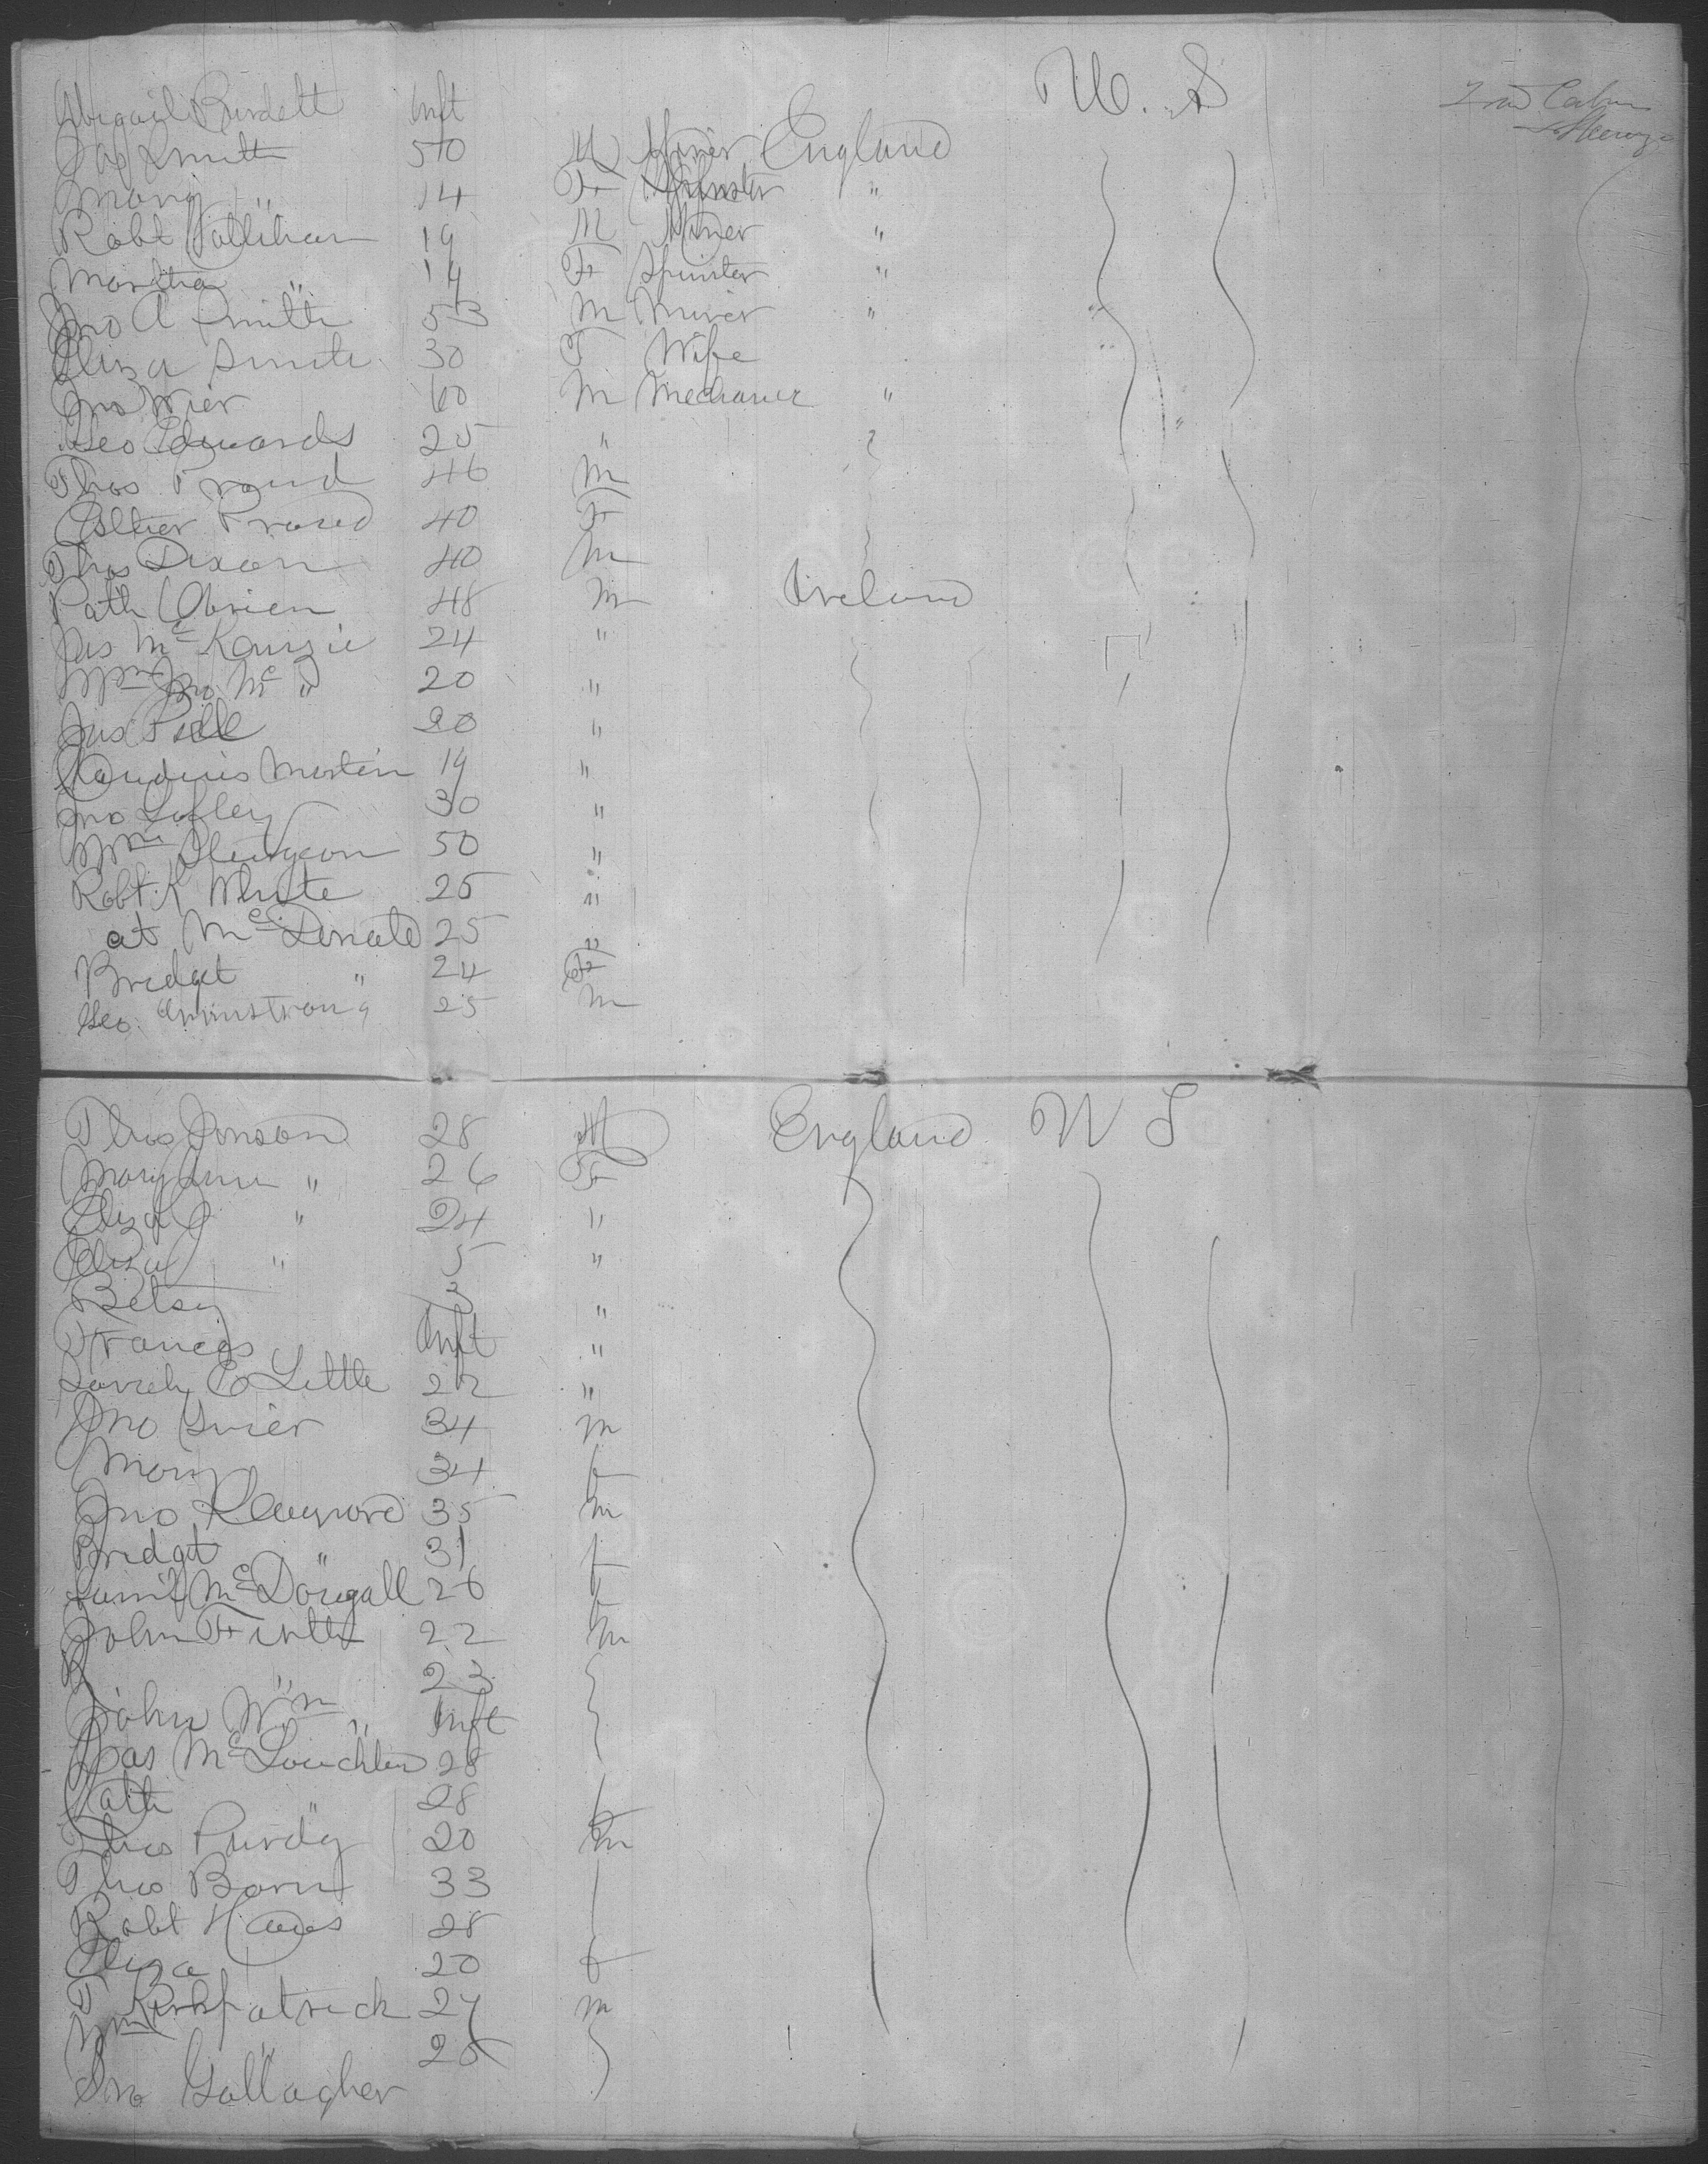 U. S
Abigail Burdett Inft 2nd Cabin
Jas Smith 50 M Miner England Steerage
Mary " 14 F Spinster "
Robt Hallihan 19 M Miner "
Martha " 14 F Spinster "
Jno A Smith 53 M Miner "
Eliza Smith 30 F Wife
Jno Wier 60 M Mechanic "
Geo Edwards 25 "
Thos Proud 46 M
Esther Proud 40 F
Thos Dixon 40 M
Path Obrien 48 M Ireland
Jas Mc Kenzie 24 "
Wm Jno Mc " 20 "
Jas Pell 20 "
Martin 19 "
Jno Lofley 30 "
Wm Sturgeon 50 "
Robt K White 25 "
at Mc Donald 25 "
Bridget " 24 F
Geo Armstrong 25 M
Thos Jonson 28 M England U S
Mary Ann " 26 F
Eliza J " 24 "
Eliza J " 5 "
Betsy 3 "
Francis Inft "
E Little 22 "
Jno Grier 34 m
Mary 34 f
Jno 35 m
Bridget " 31 f
Mc Dougall 26 f
John Firth 22 m
" 23
John Wm " Inft
Jas Mc Louchlin 28
Cath " 28
Thos Purdy 20 m
Thos Born 33
Robt Hawes 28
Eliza 20 f
T Kirkpatrick 27 m
Wm " 25
Jno Gallagher